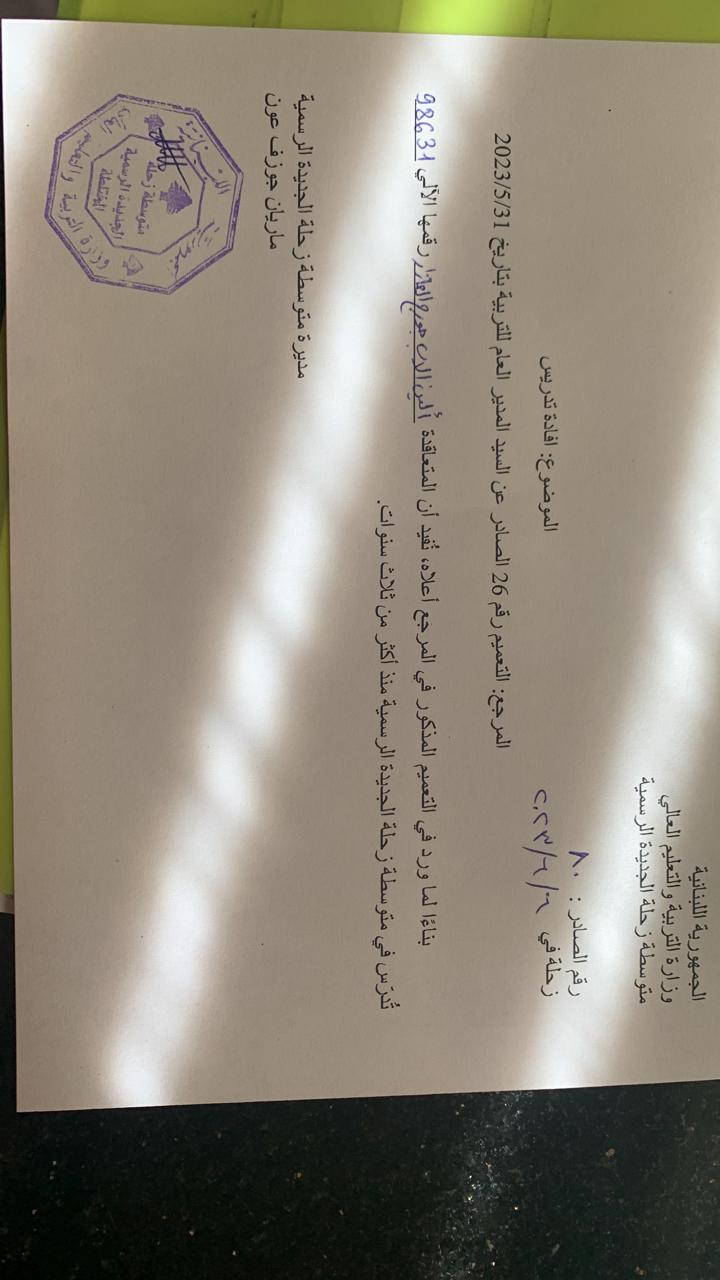 الجمهورية اللبنانية
وزارة التربية والتعليم العالي
متوسطة زحلة الجديدة الرسمية
رقم الصادر : ٨٠
زحلة في ٢٠٢٣/٦/٦
الموضوع: افادة تدريس
المرجع: التعميم رقم 26 الصادر عن السيد المدير العام للتربية بتاريخ 2023/5/31
بناءًا لما ورد في التعميم المذكور في المرجع أعلاه، نُفيد أن المتعاقدة ألين الاب جورج رقمها الآلي 98631
تُدرّس في متوسطة زحلة الجديدة الرسمية منذ أكثر من ثلاث سنوات.
مديرة متوسطة زحلة الجديدة الرسمية
ماريان جوزف عون
متوسطة زحلة
الجديدة الرسمية
المختلطة
وزارة التربية